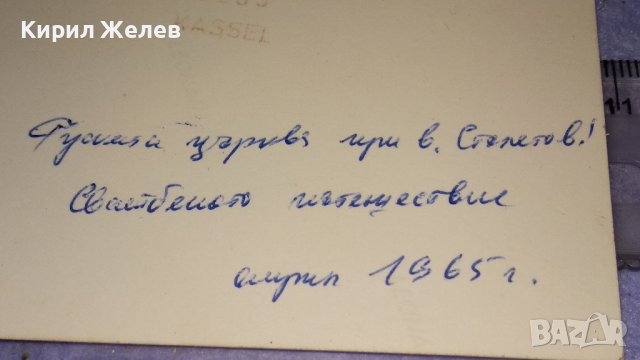 Кирил Желев
KASSEL
Руската църква при в. Столетов!
Сватбеното пътешествие
април 1965 г.
11
BAZAR